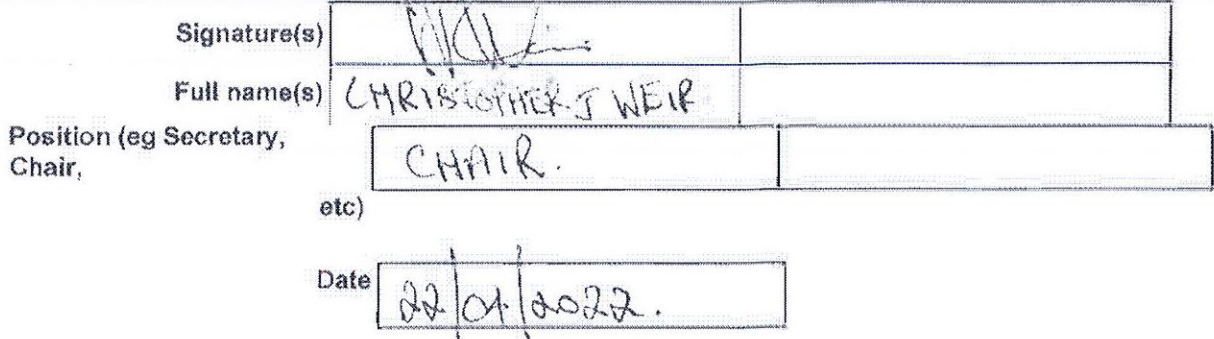 Signature(s)
Full name(s) CHRISTOPHER J WEIR
Position (eg Secretary, CHAIR.
Chair,
etc)
Date 22/04/2022.